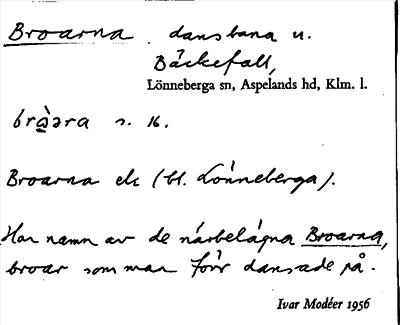 Broarna dansbana u.
Bäckefall,
Lönneberga sn, Aspelands hd, Klm. l.
s. 16.
Broarna ek (bl. Lönneberga).
Har namn av de närbelägna Broarna,
broar som man förr dansade på.
Ivar Modéer 1956